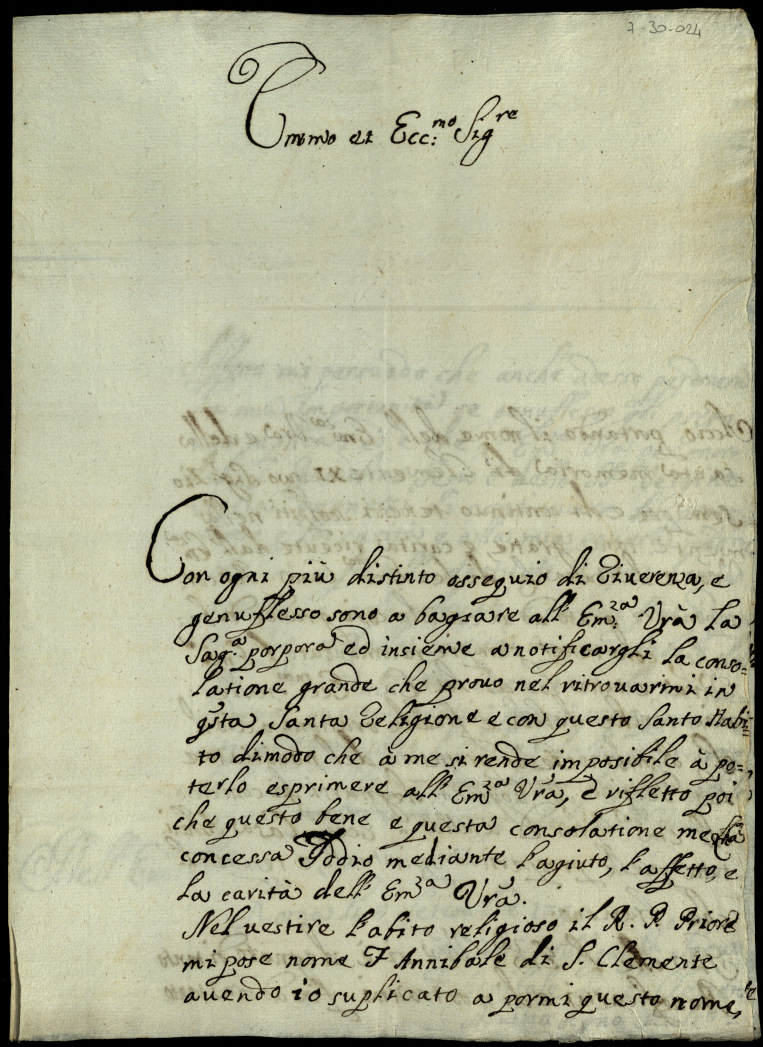 7-30-024
Emmo et Ecc:mo Sigre
Con ogni più distinto ossequio di Riverenza, e
genuflesso sono a bagiare all' Em:za Vra la
Sag:a porpora ed insieme a notificargli la conso=
latione grande che provo nel ritrouarmi in
qsta Santa Religione e con questo Santo Habi=
to dimodo che à me si rende imposibile à po=
terlo esprimere all' Emza Vra, e rifletto poi
che questo bene e questa consolatione me
concessa Iddio mediante l'agiuto, l'affetto, e
la carità dell' Emza Vra.
Nel uestire l'abito religioso il R. P. Priore
mi pose nome F Annibale di S. Clemente
auendo io suplicato a pormi questo nome,